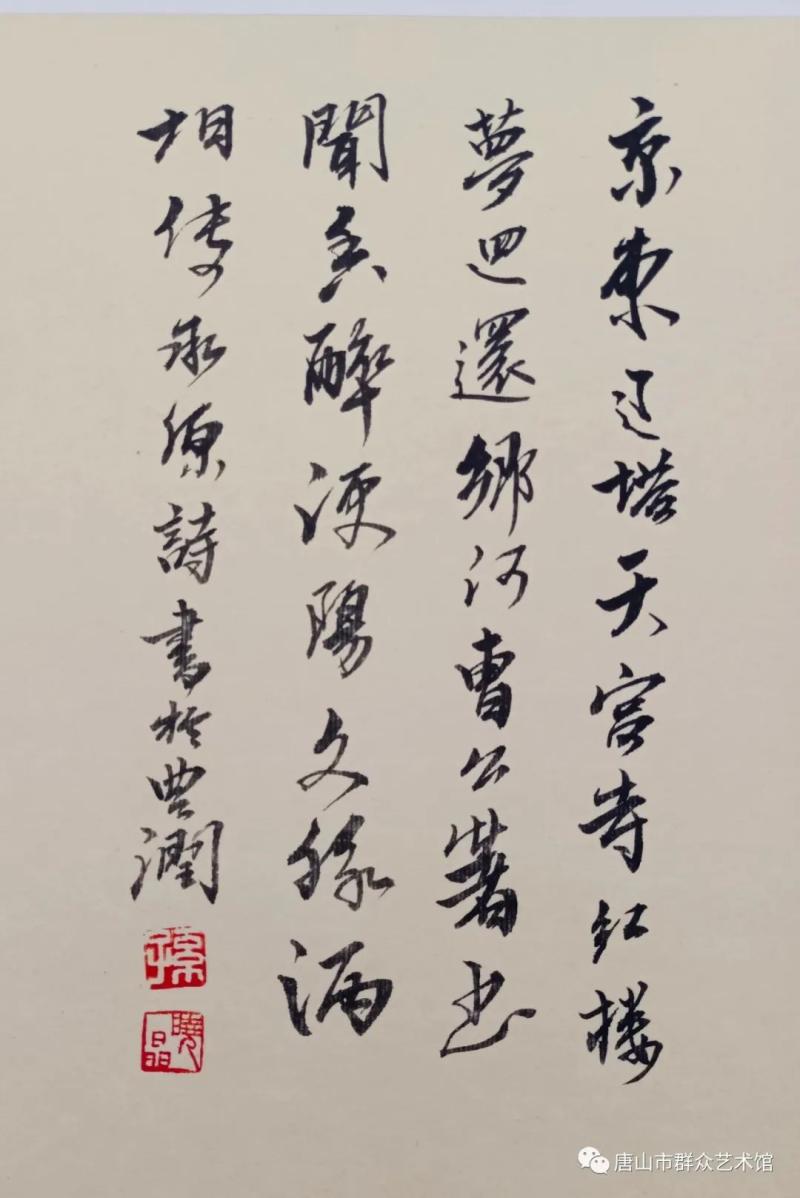 京東辽塔天宮寺紅楼
夢迴還鄉河曹公著书
聞香醉浭陽文脉酒
相传永源詩書於豊潤
孫
曉晶
唐山市群众艺术馆